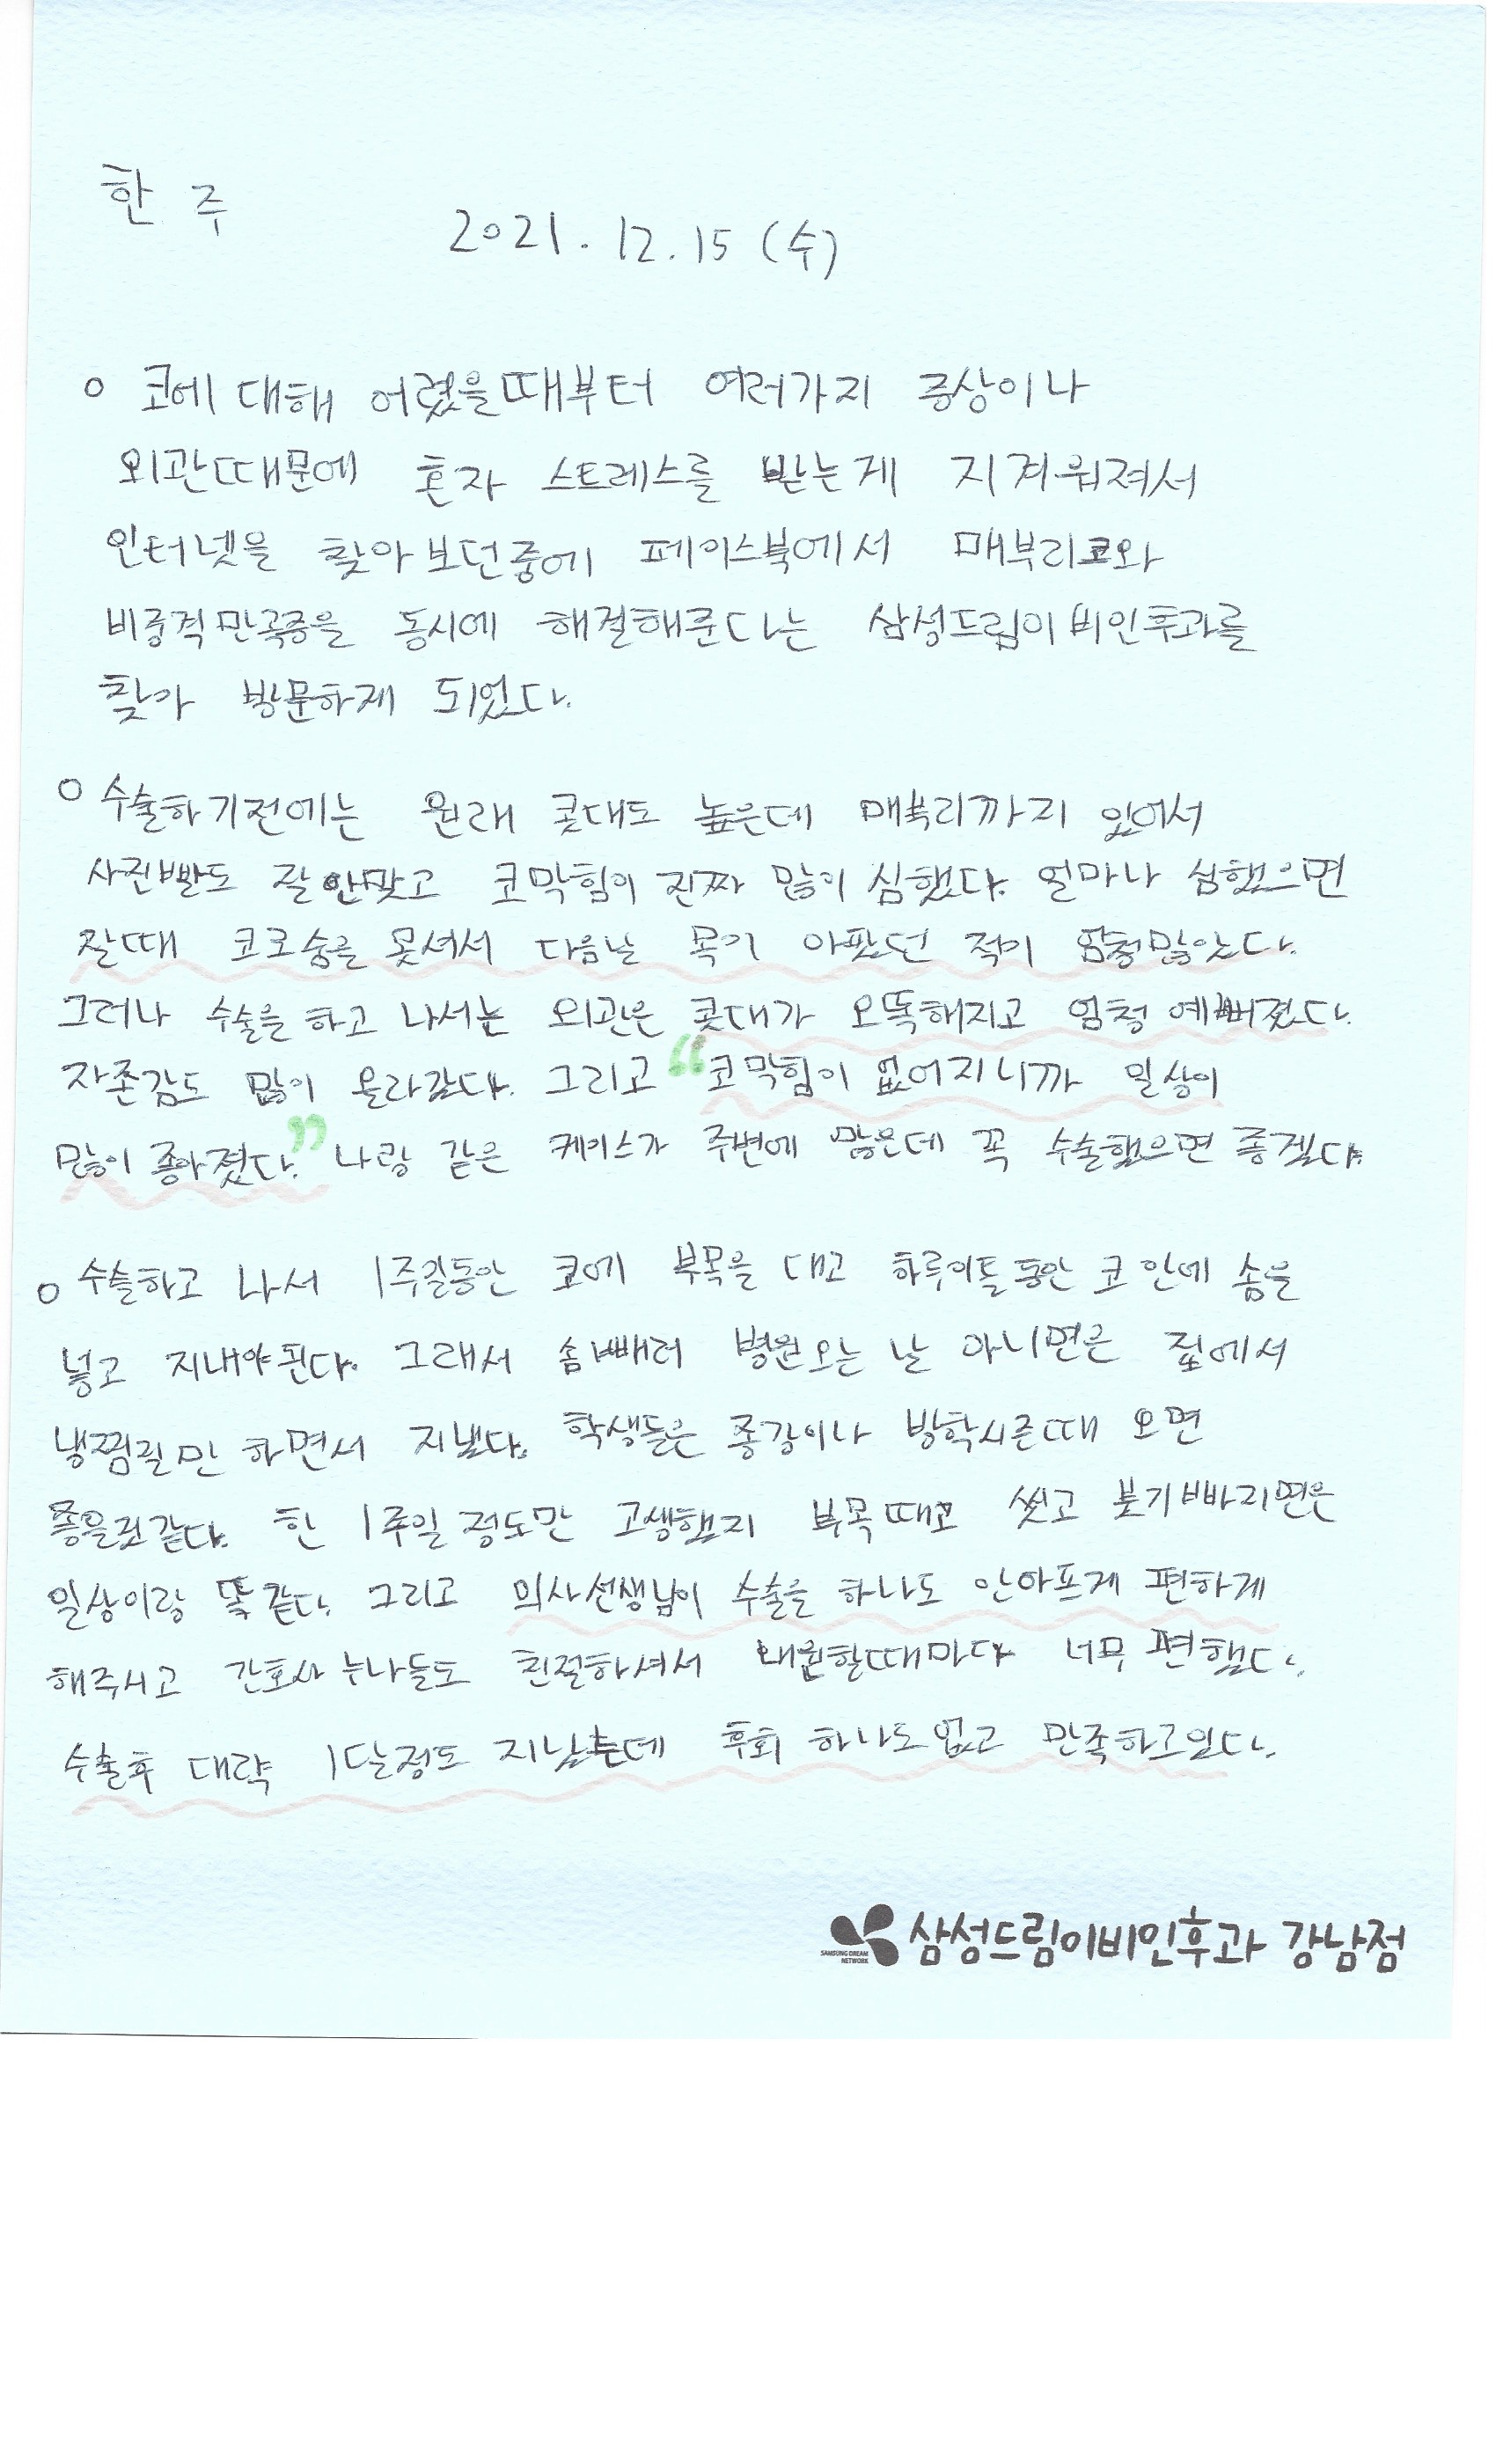 한 주
2021. 12. 15 (수)
○ 코에 대해 어렸을때부터 여러가지 증상이나
외관때문에 혼자 스트레스를 받는게 지겨워져서
인터넷을 찾아보던중에 페이스북에서 매부리코와
비중격만곡증을 동시에 해결해준다는 삼성드림이비인후과를
찾아 방문하게 되었다.
○ 수술하기전에는 원래 콧대도 높은데 매부리까지 있어서
사진빨도 잘안맞고 코막힘이 진짜 많이 심했다. 얼마나 심했으면
잘때 코로숨을 못셔서 다음날 목이 아팠던 적이 엄청많았다.
그러나 수술을 하고 나서는 외관은 콧대가 오똑해지고 엄청 예뻐졌다.
자존감도 많이 올라갔다. 그리고 “코막힘이 없어지니까 일상이
많이 좋아졌다.” 나랑 같은 케이스가 주변에 많은데 꼭 수술했으면 좋겠다.
○ 수술하고 나서 1주일동안 코에 부목을 대고 하루이틀동안 코안에 솜을
넣고 지내야된다. 그래서 솜빼러 병원오는 날 아니면은 집에서
냉찜질만 하면서 지냈다. 학생들은 종강이나 방학시즌때 오면
좋을것같다. 한 1주일 정도만 고생했지 부목때고 씻고 붓기빠지면은
일상이랑 똑같다. 그리고 의사선생님이 수술을 하나도 안아프게 편하게
해주시고 간호사 누나들도 친절하셔서 내원할때마다 너무 편했다.
수술후 대략 1달정도 지났는데 후회 하나도없고 만족하고있다.
SAMSUNG DREAM
NETWORK
삼성드림이비인후과 강남점